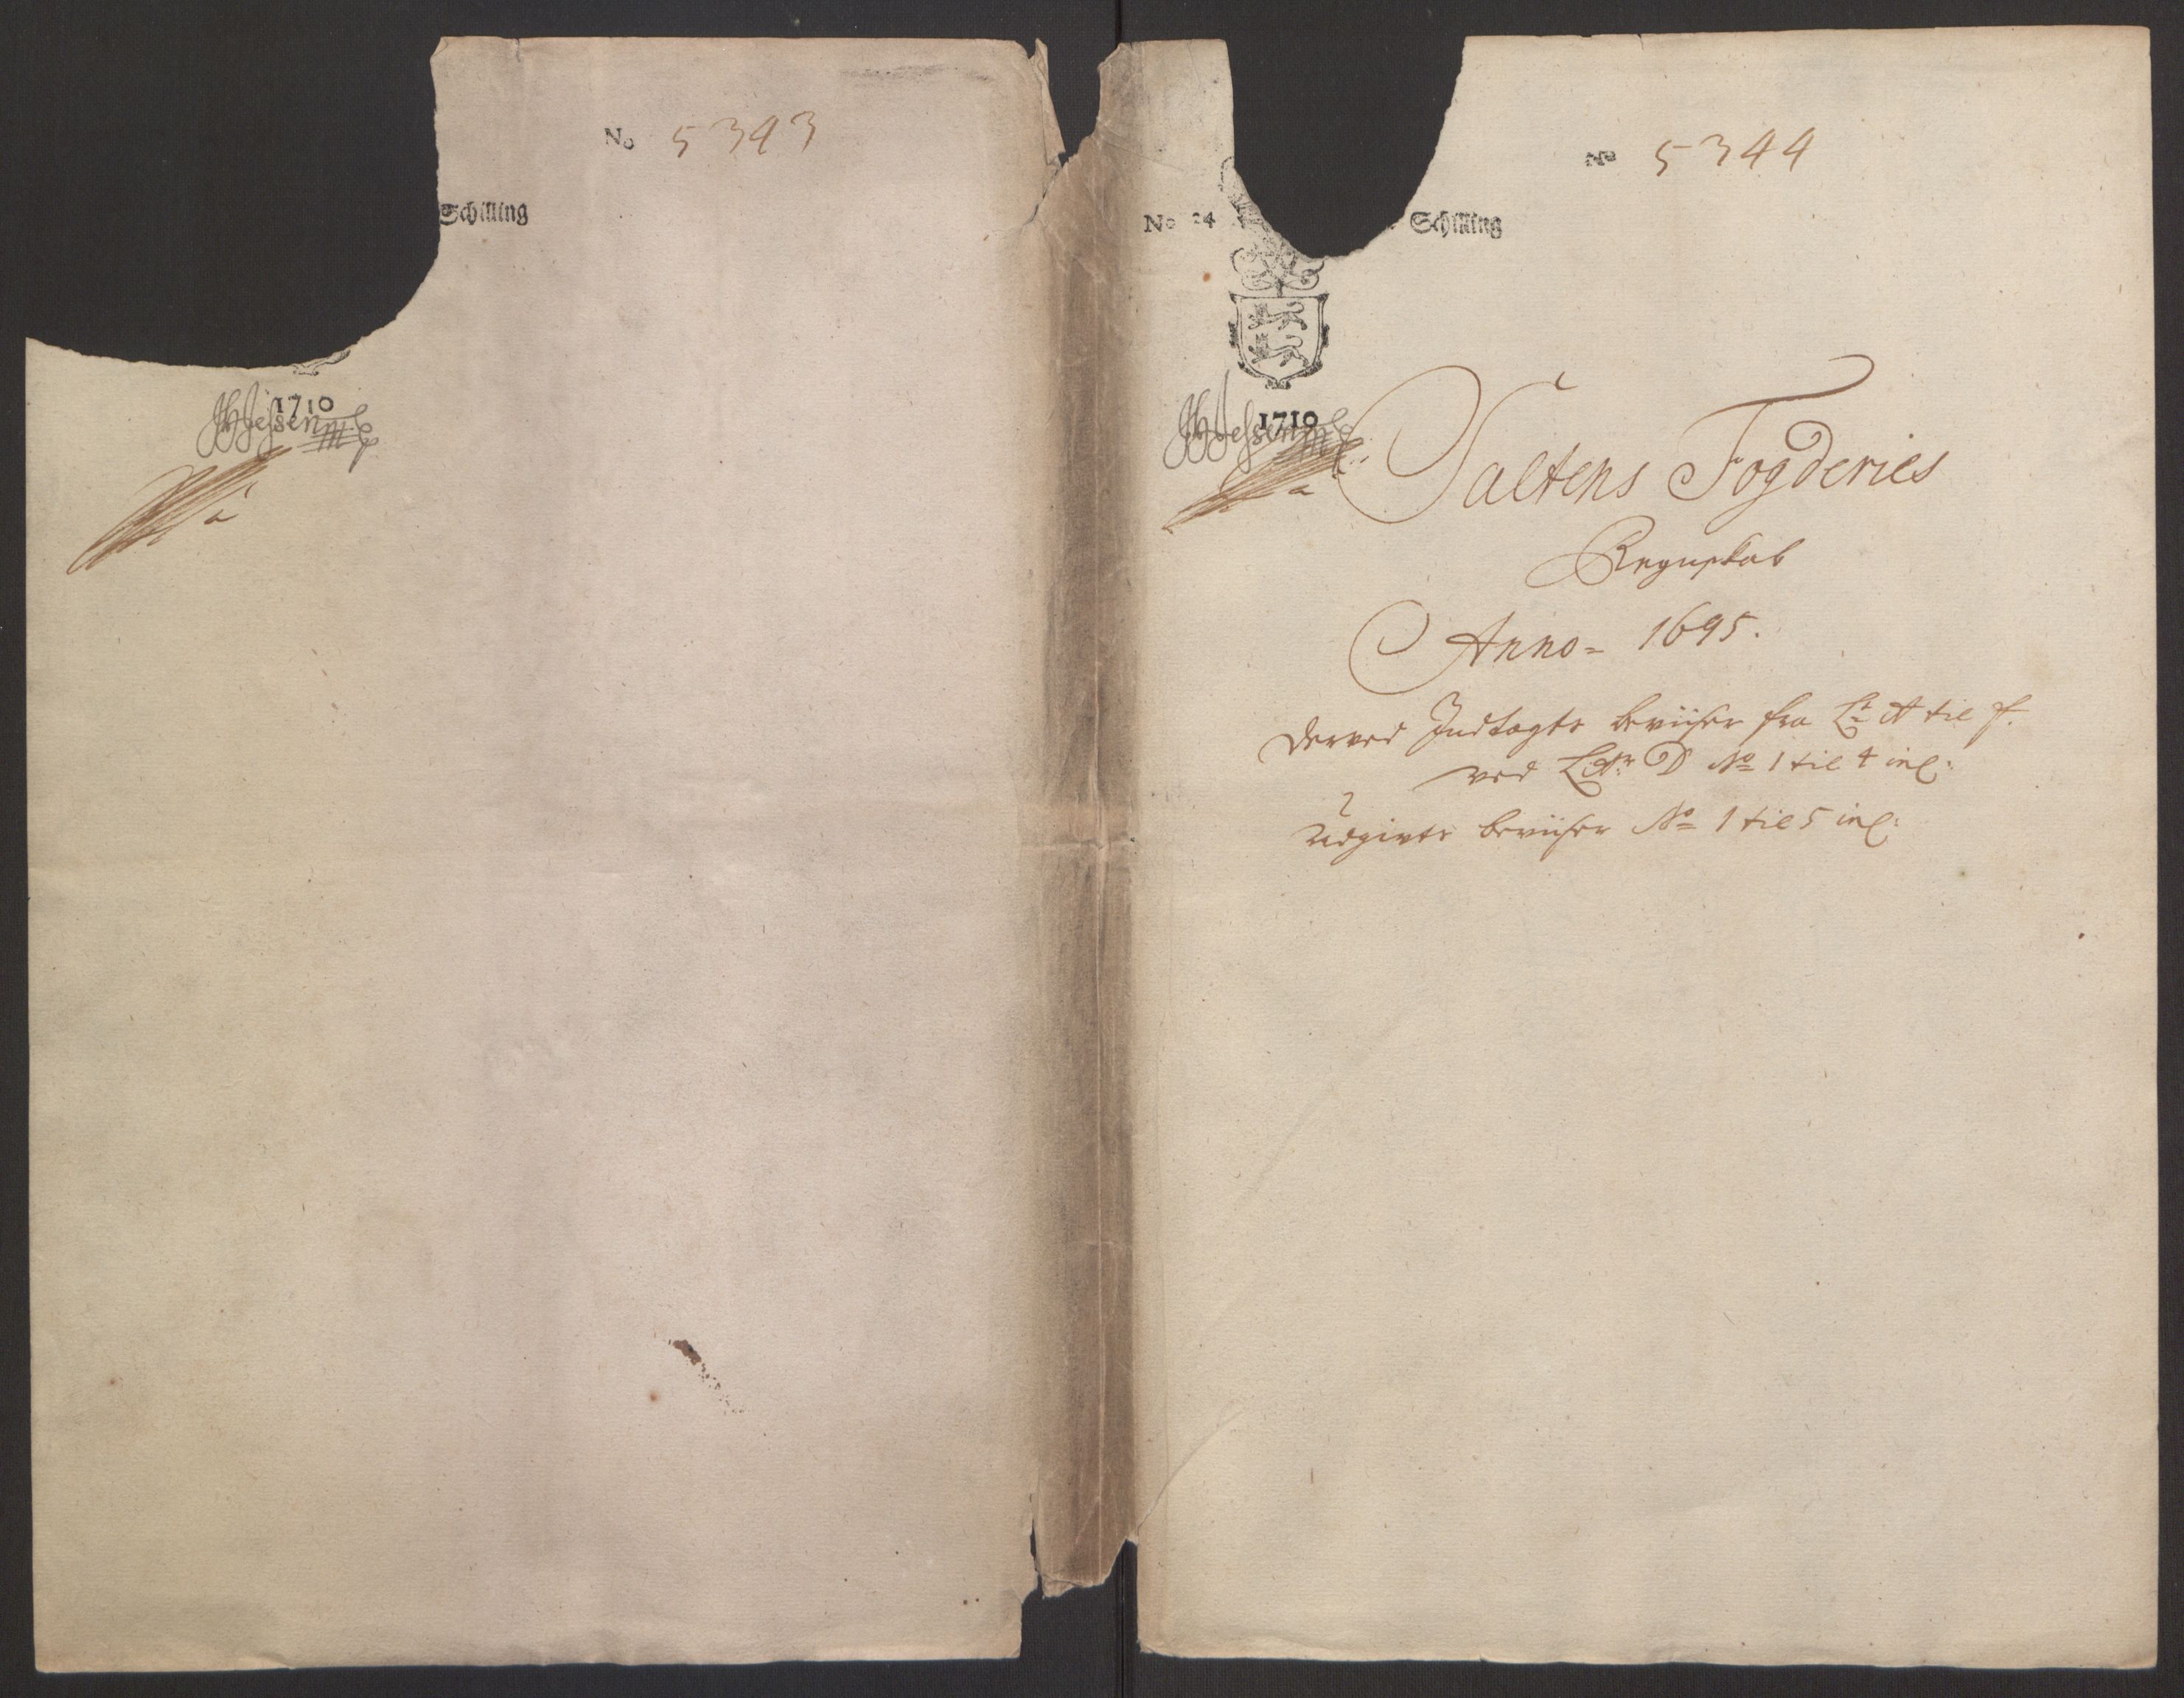 No 5343
Schilling
1710
HHJessen mp
No 5344
No 24 Schilling
1710
HHJessen mp
Saltens Fogderies
Regnskab
Anno= 1695.
Derved Indtægts beviiser fra Lr A til F.
ved Litr: D No 1 til 4 incl:
Udgivts beviiser No 1 til 5 incl: